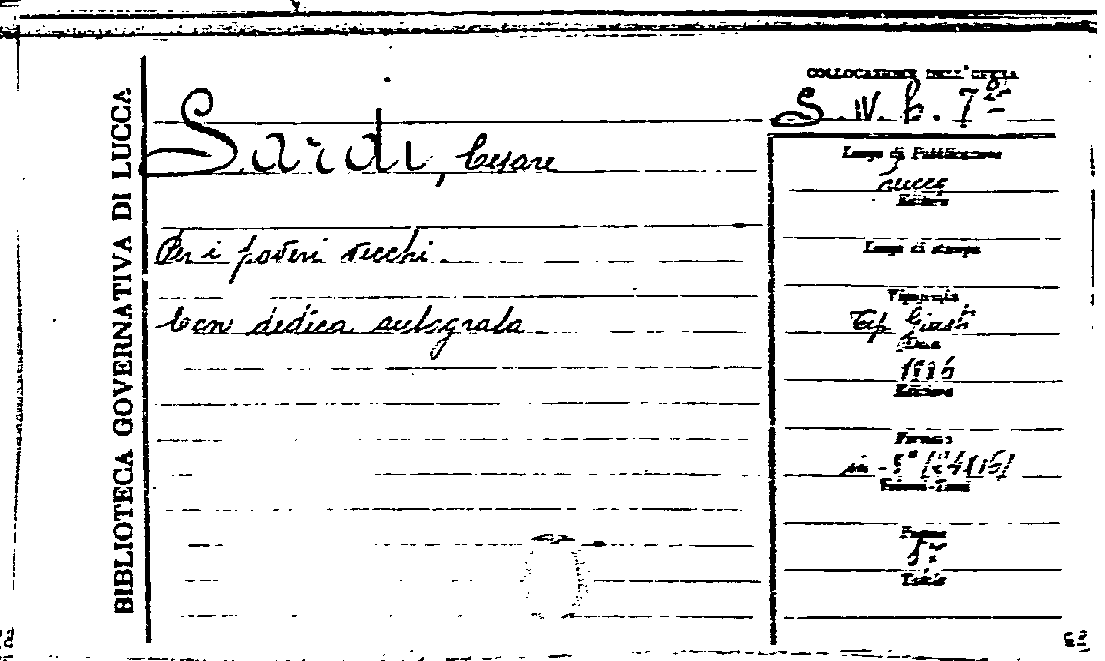 BIBLIOTECA GOVERNATIVA DI LUCCA
Sardi, Cesare
Per i poveri vecchi.
Con dedica autografa
COLLOCAZIONE DELL'OPERA
S. IV. b. 7
Luogo di Pubblicazione
Lucca
Editore
Luogo di stampa
Tipografia
Tip. Giusti
Data
Edizione
Formato
in-8° (24x16)
Volumi-Tomi
Pagine
Tavole